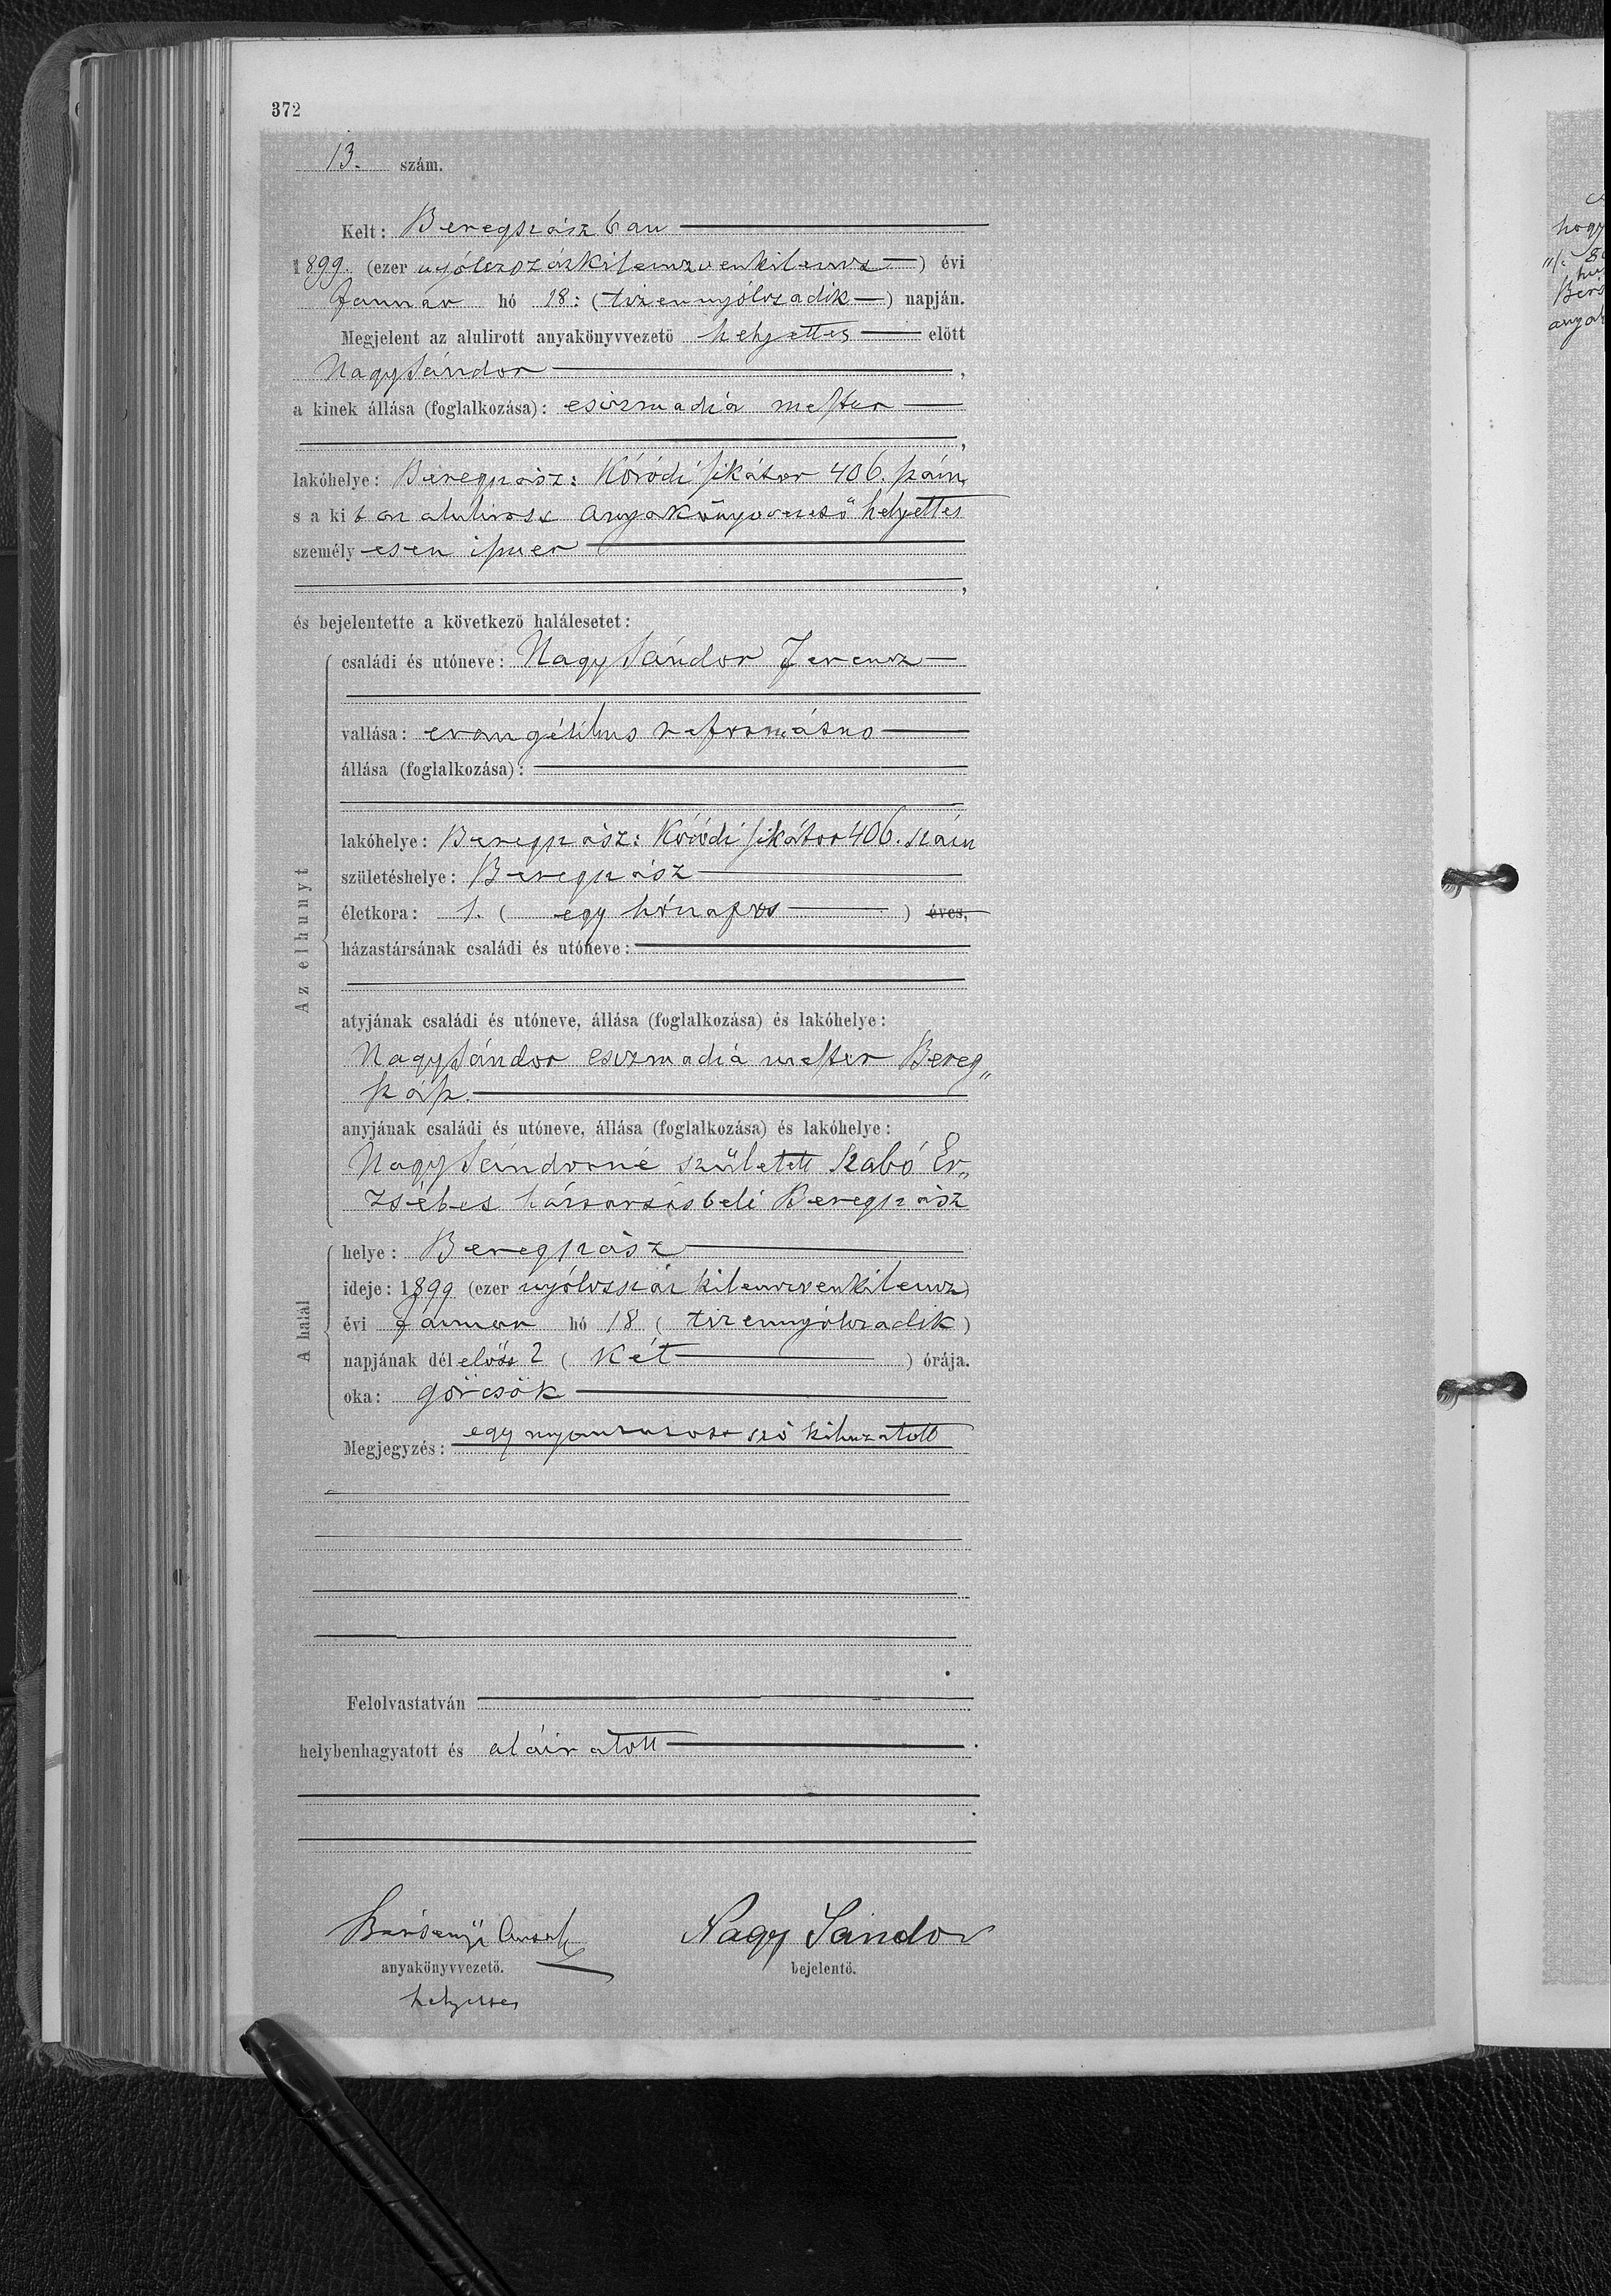 372
13. szám.
Kelt: Beregszászban
1899. (ezer nyolczszázkilenczvenkilencz) évi
Január hó 18: (tizennyólczadik) napján.
Megjelent az alulirott anyakönyvvezető helyettes előtt
Nagy Sándor,
a kinek állása (foglalkozása): csizmadia mester
lakóhelye: Beregszász: Kóródi sikátor 406. szám,
s a kit az alulirott anyakönyvvezető helyettes
személyesen ismer
és bejelentette a következő halálesetet:
Az elhunyt
családi és utóneve: Nagy Sándor Ferencz
vallása: evangélikus református
állása (foglalkozása):
lakóhelye: Beregszász: Kóródi sikátor 406. szám
születéshelye: Beregszász
életkora: 1. (egy hónapos) éves,
házastársának családi és utóneve:
atyjának családi és utóneve, állása (foglalkozása) és lakóhelye:
Nagy Sándor csizmadia mester Bereg„
szász.
anyjának családi és utóneve, állása (foglalkozása) és lakóhelye:
Nagy Sándorné született Szabó Er„
zsébet háztartásbeli Beregszász
A halál
helye: Beregszász
ideje: 1899 (ezer nyólczszáz kilenczvenkilencz)
évi Január hó 18 (tizennyólczadik)
napjának délelőtt 2 (két) órája.
oka: görcsök
Megjegyzés: egy nyomtatott szó kihuzatott
Felolvastatván
helybenhagyatott és aláiratott.
Nagy Sándor
anyakönyvvezető. bejelentő.
helyettes
hogy